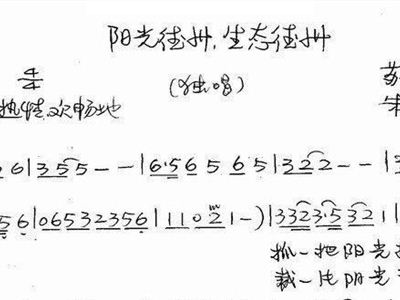 阳光德州,生态德州
(独唱)
4/4
热情欢畅地
6 | 3 5 5 - - | 6·5 6 5 6 5 | 3 2 2 - - |
5 6 | 0 6 5 3 2 3 5 6 | 1 1 0 2 1 - ) | 3 3 2 3·5 3 2 1 |
抓一把阳光
裁一片阴光